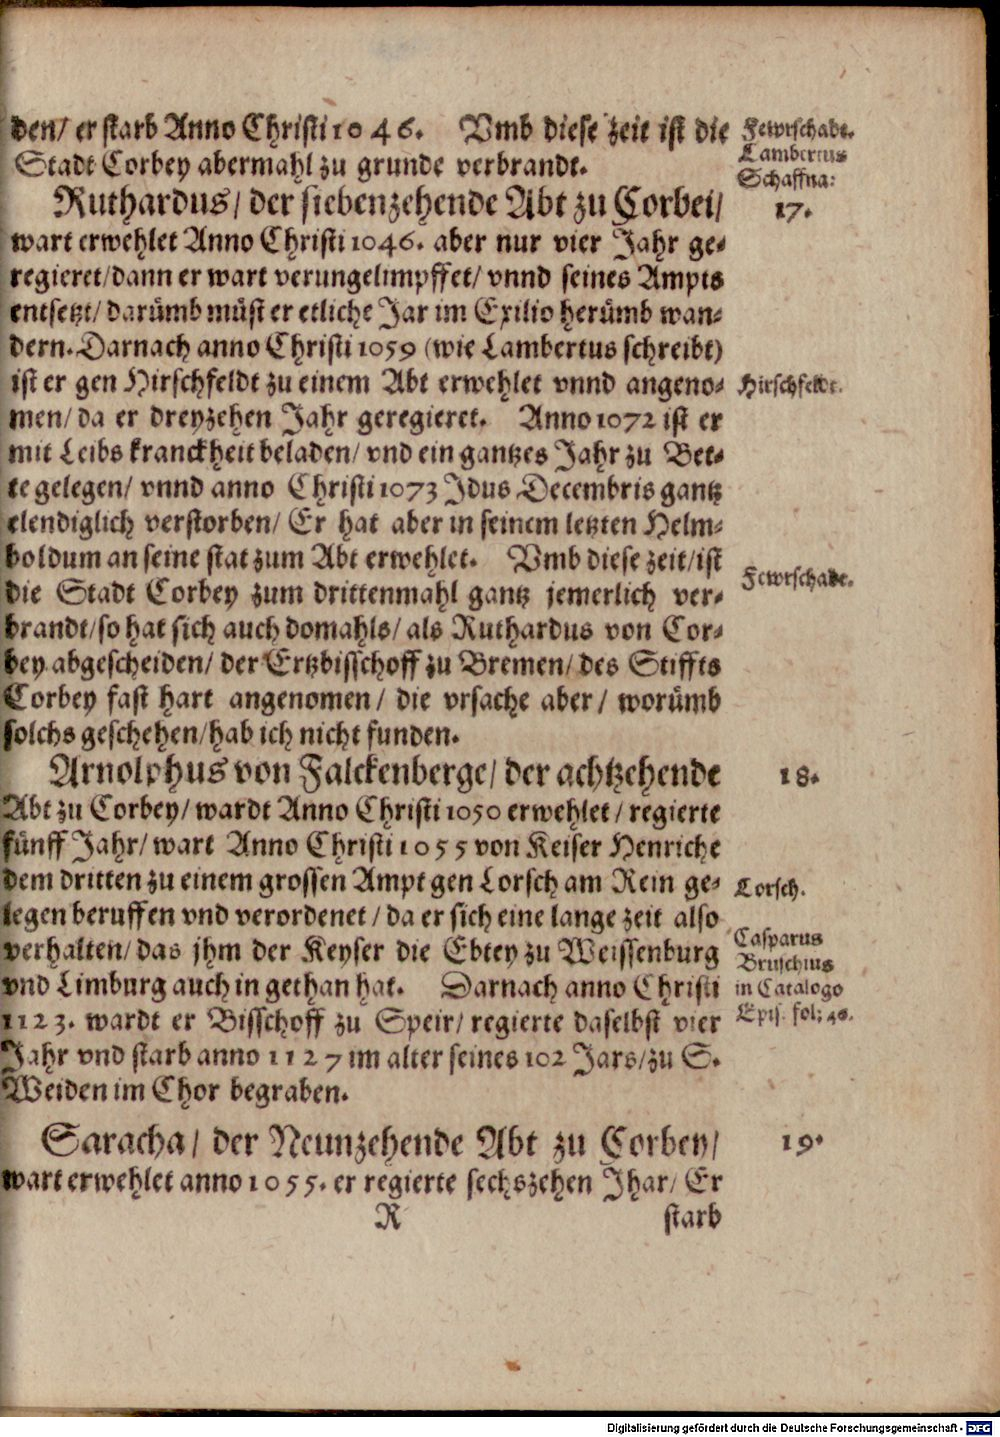 den/ er starb Anno Christi 1046. Vmb diese zeit ist die
Stadt Corbey abermahl zu grunde verbrandt.
Fewrschade.
Lambertus
Schaffna:
Ruthardus/ der siebenzehende Abt zu Corbei/
17.
wart erwehlet Anno Christi 1046. aber nur vier Jahr ge-
regieret/dann er wart verungelimpffet/ vnnd seines Ampts
entsetzt/ darümb müst er etliche Jar im Exilio herümb wan-
dern. Darnach anno Christi 1059 (wie Lambertus schreibt)
ist er gen Hirschfeldt zu einem Abt erwehlet vnnd angeno-
Hirschfeldt.
men/ da er dreyzehen Jahr geregieret. Anno 1072 ist er
mit Leibs kranckheit beladen/ vnd ein gantzes Jahr zu Bet-
te gelegen/ vnnd anno Christi 1073 Idus Decembris gantz
elendiglich verstorben/ Er hat aber in seinem letzten Helm-
boldum an seine stat zum Abt erwehlet. Vmb diese zeit/ist
die Stadt Corbey zum drittenmahl gantz jemerlich ver-
Fewrschade.
brandt/so hat sich auch domahls/ als Ruthardus von Cor-
bey abgescheiden/ der Ertzbisschoff zu Bremen/ des Stiffts
Corbey fast hart angenomen/ die vrsache aber/ worümb
solchs geschehen/hab ich nicht funden.
Arnolphus von Falckenberge/ der achtzehende
18.
Abt zu Corbey/ wardt Anno Christi 1050 erwehlet/ regierte
fünff Jahr/ wart Anno Christi 1055 von Keiser Henriche
dem dritten zu einem grossen Ampt gen Lorsch am Rein ge-
Lorsch.
legen beruffen vnd verordenet/ da er sich eine lange zeit also
verhalten/ das jhm der Keyser die Ebtey zu Weissenburg
vnd Limburg auch in gethan hat. Darnach anno Christi
Casparus
Bruschius
in Catalogo
Epis. fol: 40.
1123. wardt er Bisschoff zu Speir/ regierte daselbst vier
Jahr vnd starb anno 1127 im alter seines 102 Jars/zu S.
Weiden im Chor begraben.
Saracha/ der Neunzehende Abt zu Corbey/
19.
wart erwehlet anno 1055. er regierte sechszehen Jhar/ Er
R
starb
Digitalisierung gefördert durch die Deutsche Forschungsgemeinschaft - DFG